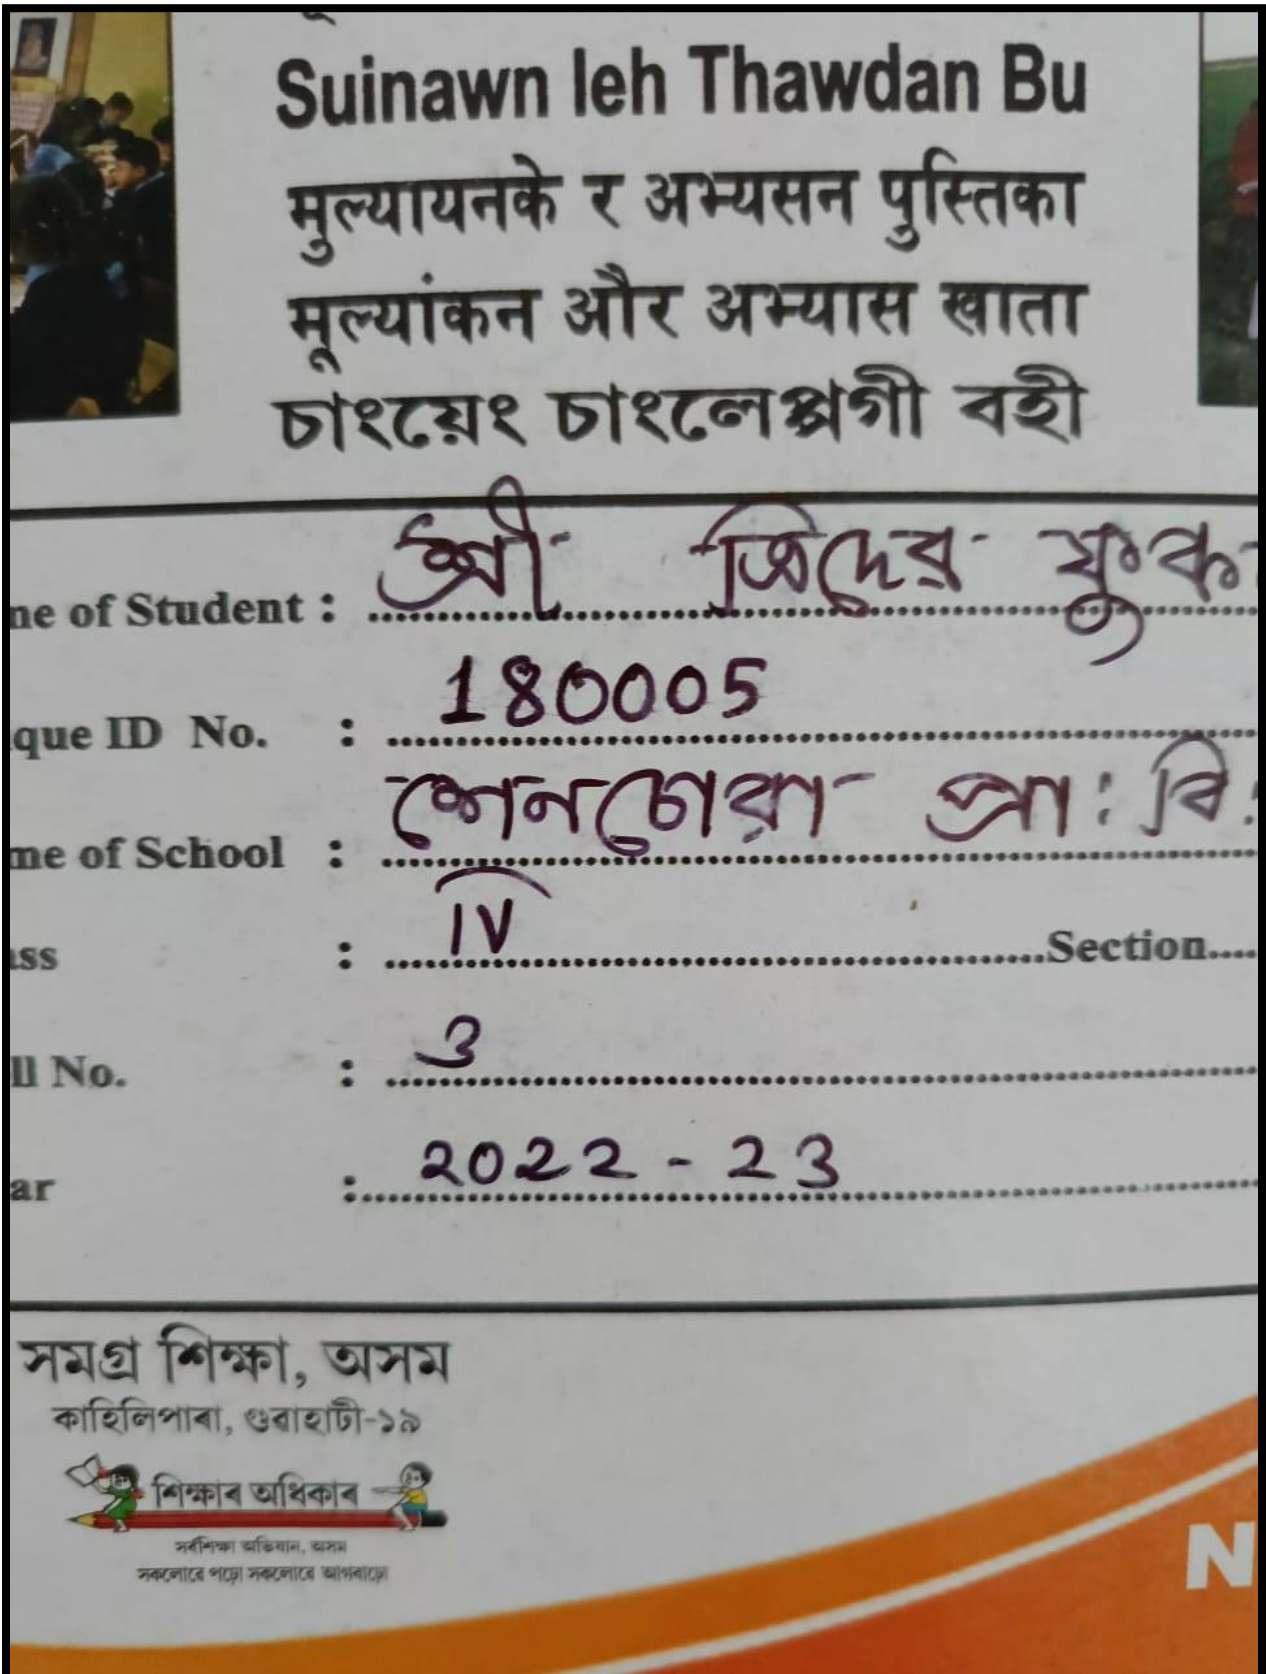 Suinawn leh Thawdan Bu
मुल्यायनके र अभ्यसन पुस्तिका
मूल्यांकन और अभ्यास खाता
চাংয়েং চাংলেপ্পগী বহী
me of Student : শ্রী ত্ৰিদেৱ ফুক
que ID No. : 180005
me of School : শেনচোৱা প্ৰা: বি:
ass : IV Section
ll No. : 3
ar : 2022 - 23
সমগ্ৰ শিক্ষা, অসম
কাহিলিপাৰা, গুৱাহাটী-১৯
শিক্ষাৰ অধিকাৰ
সৰ্বশিক্ষা অভিযান, অসম
সকলোৱে পঢ়ো সকলোৱে আগবাঢ়ো
N